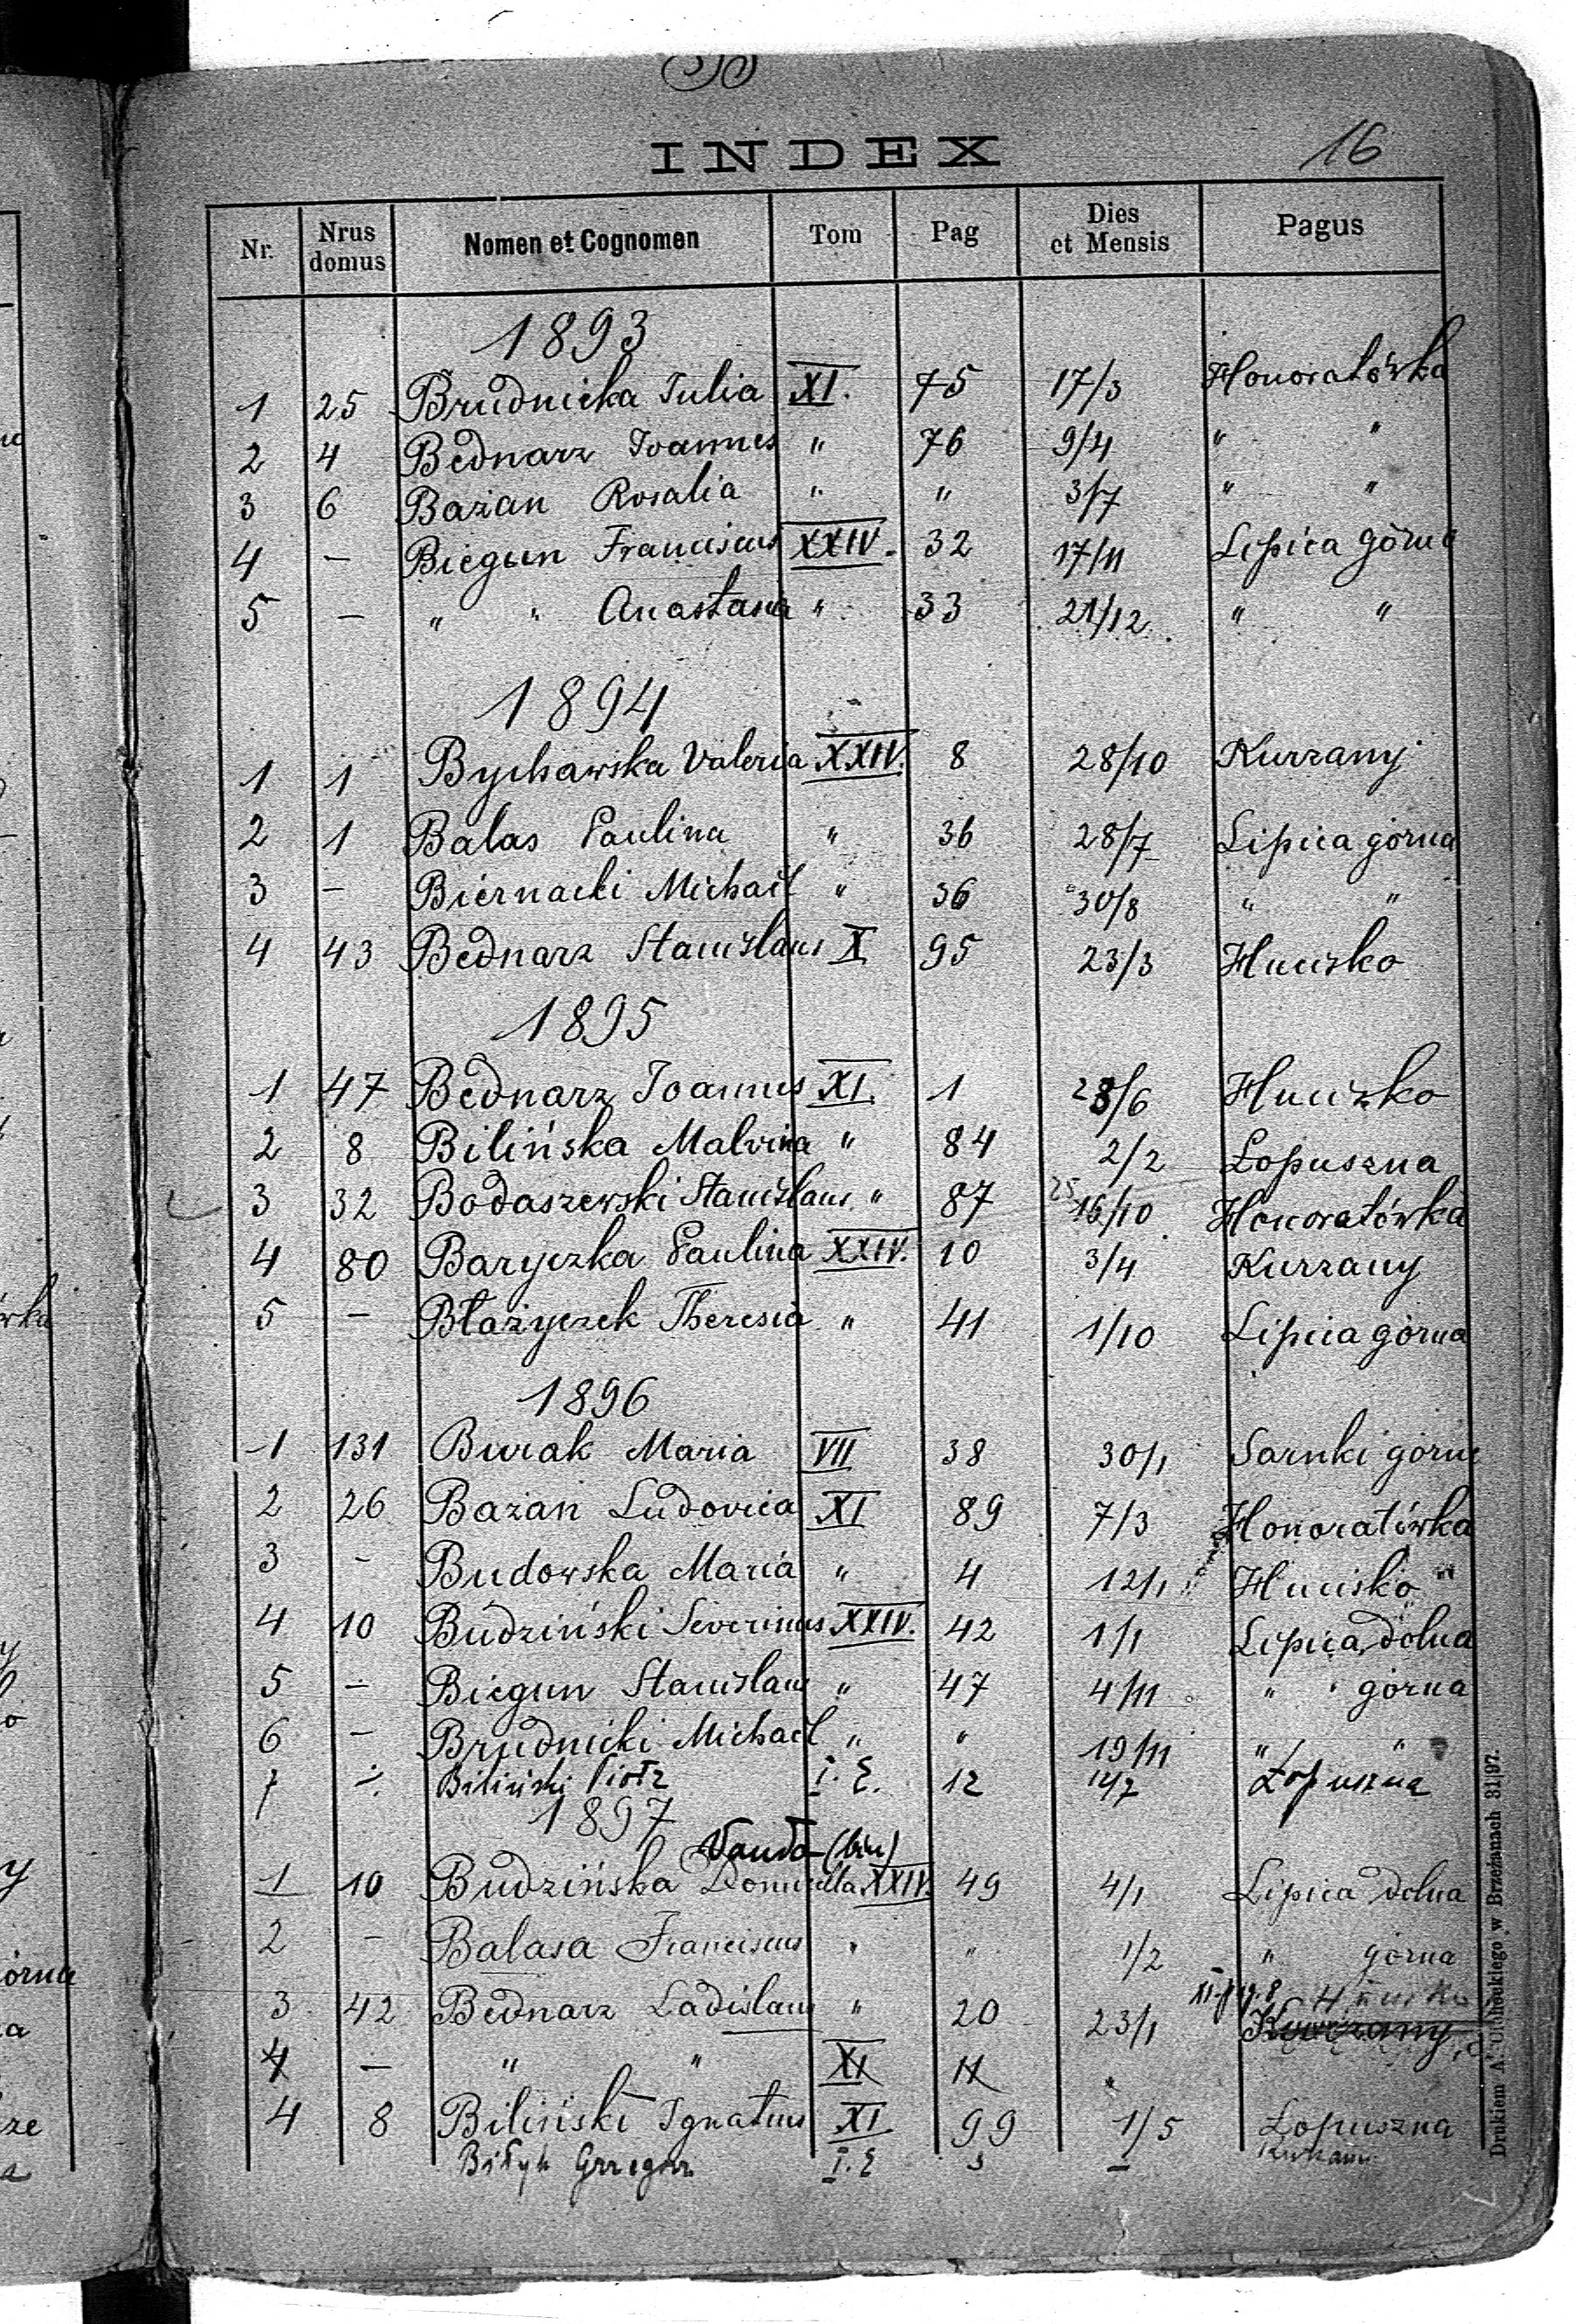 INDEX
16
Nr. Nrus domus Nomen et Cognomen Tom Pag Dies et Mensis Pagus
1893
1 25 Brudnicka Julia XI. 75 17/3 Honoratówka
2 4 Bednarz Joannes " 76 9/4 " "
3 6 Bażan Rosalia " " 3/7 " "
4 – Biegun Franciscus XXIV. 32 17/11 Lipica górna
5 – " " Anastasia " 33 21/12 " "
1894
1 1 Bychawska Valeria XXIV. 8 28/10 Kurzany
2 1 Balas Paulina " 36 28/7 Lipica górna
3 – Biernacki Michaël " 36 30/8 " "
4 43 Bednarz Stanislaus X 95 23/3 Hucisko
1895
1 47 Bednarz Joannes XI. 1 28/6 Hucisko
2 8 Bilińska Malvina " 84 2/2 Lopuszna
3 32 Bodaszewski Stanislaus " 87 25 16/10 Honoratówka
4 80 Baryczka Paulina XXIV. 10 3/4 Kurzany
5 – Błażyczek Theresia " 41 1/10 Lipica górna
1896
1 131 Burak Maria VII 38 30/1 Sarnki górne
2 26 Bażan Ludovica XI 89 7/3 Honoratówka
3 – Budowska Maria " 4 12/1 Hucisko
4 10 Budziński Severinus XXIV. 42 1/1 Lipica dolna
5 – Biegun Stanislaus " 47 4/11 " górna
6 – Brudnicki Michaël " " 19/11 " "
7 Biliński Piotr I. E. 12 Łopuszna
1897
Vanda (bin)
1 10 Budzińska Domicella XXIV. 49 4/1 Lipica dolna
2 – Balasa Franciscus " " 1/2 " górna
XI pag. 8 Hucisko
3 42 Bednarz Ladislaus " 20 23/1 Kurzany
4 – " " XI "
4 8 Biliński Ignatius XI 99 1/5 Łopuszna
Biłyk Grzegorz I. E 3 – Kurzany
Drukiem A. w Brzeżanach 31|97.